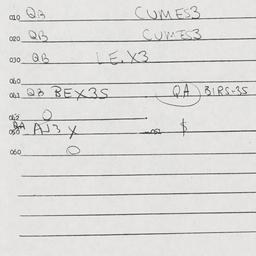 010 QB CUMES3
020 QB CUMES3
030 QB LE.X3
040
041 QB BEX3S QA BIRS-3S
042 O
050 AJ3 X $
060 O